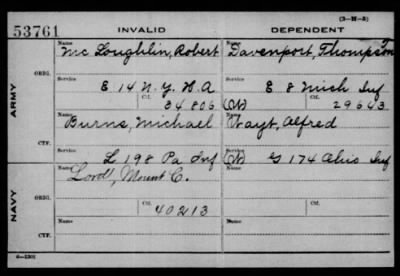 (3-M-5)
53761 INVALID DEPENDENT
Name Name
Mc Loughlin, Robert Davenport, Thompson T
ORIG.
Service Service
E 14 N.Y. H A E 8 Mich Inf
Ctf. Ctf.
34806 (W) 29643
ARMY
Name Name
Burns, Michael Wayt, Alfred
CTF.
Service Service
L 198 Pa Inf (W) G 174 Ohio Inf
Name
Mount C.
ORIG.
Ctf. Ctf.
40213
NAVY
Name Name
CTF.
6-1301